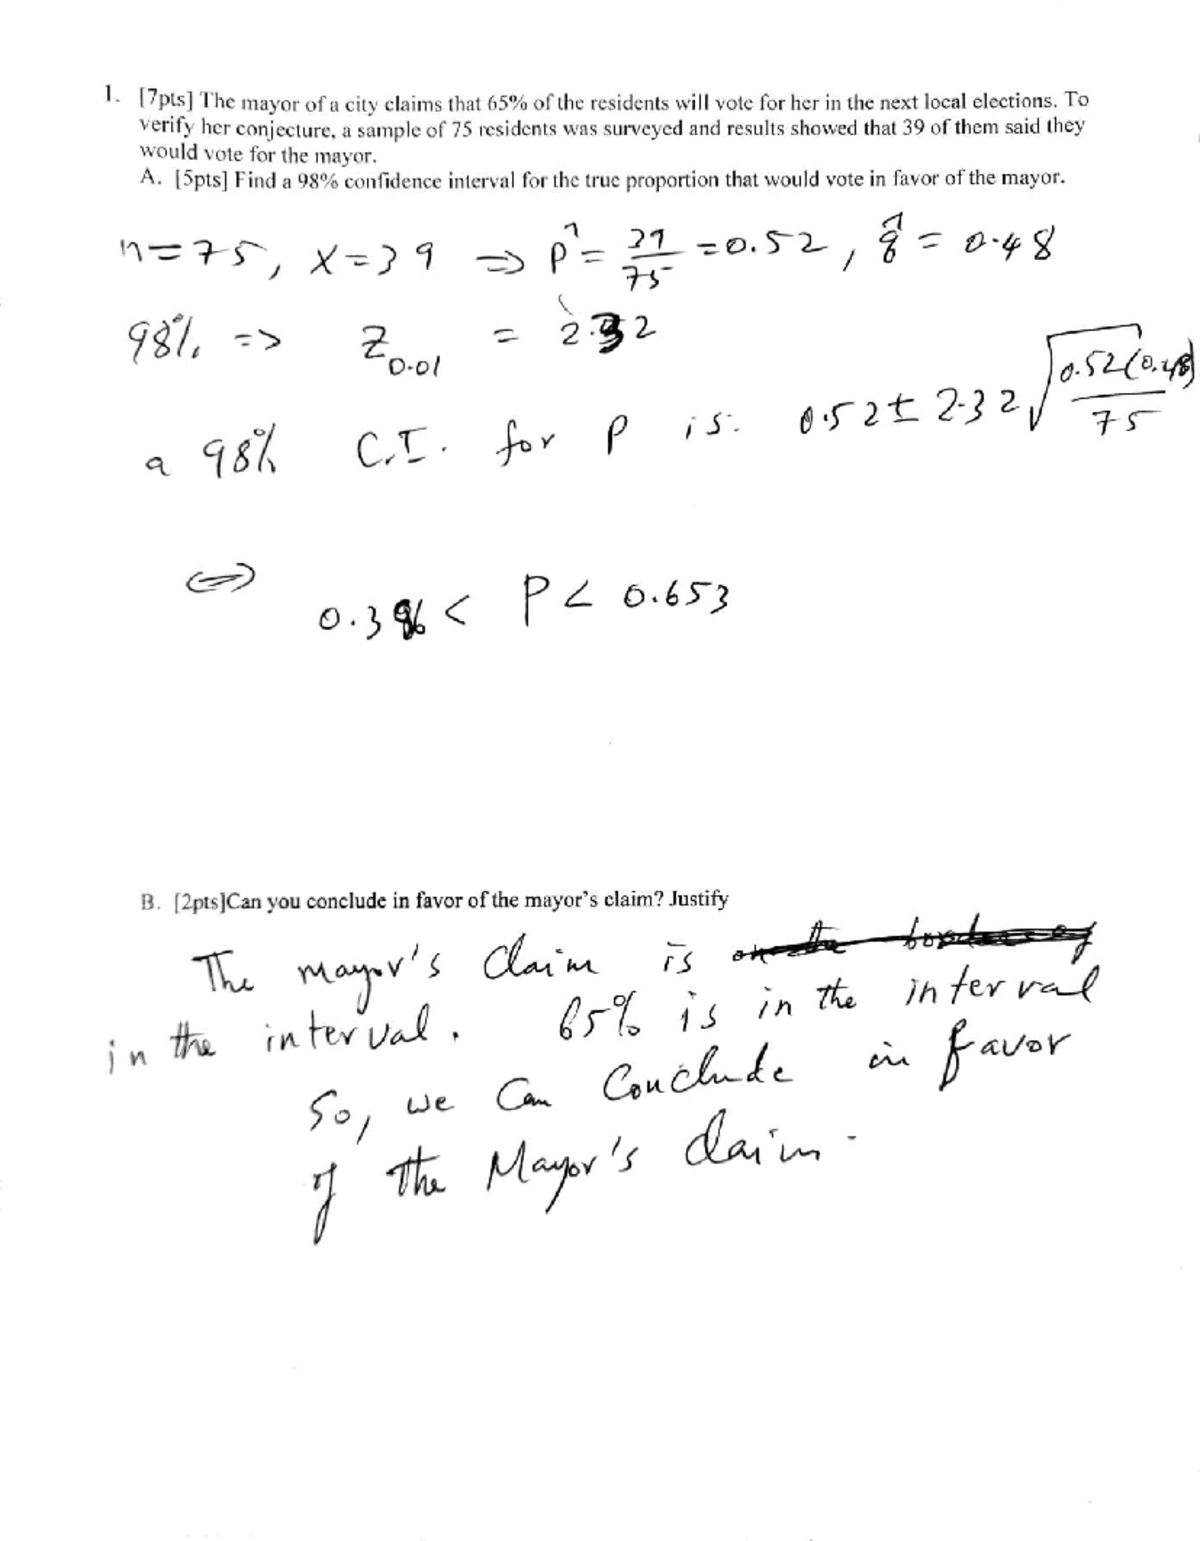 1. [7pts] The mayor of a city claims that 65% of the residents will vote for her in the next local elections. To
verify her conjecture, a sample of 75 residents was surveyed and results showed that 39 of them said they
would vote for the mayor.
A. [5pts] Find a 98% confidence interval for the true proportion that would vote in favor of the mayor.
n=75, x=39 => p̂ = 39/75 = 0.52, q̂ = 0.48
98% => Z0.01 = 2.32
a 98% C.I. for p is: 0.52 ± 2.32 √(0.52(0.48)/75)
<=> 0.386 < P < 0.653
B. [2pts]Can you conclude in favor of the mayor's claim? Justify
The mayor's Claim is
in the interval. 65% is in the interval
So, we Can Conclude in favor
of the Mayor's claim.